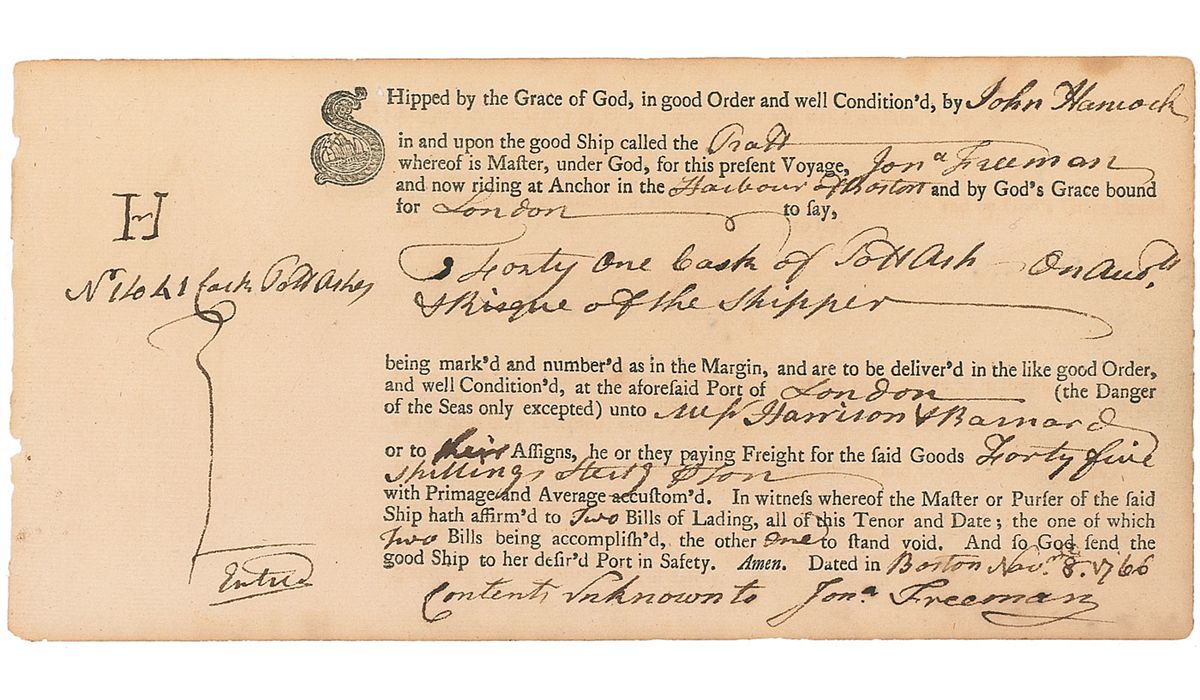 SHipped by the Grace of God, in good Order and well Condition'd, by John Hancock
in and upon the good Ship called the Pratt
whereof is Maſter, under God, for this preſent Voyage, Jonᵃ Freeman
and now riding at Anchor in the Harbour of Boston and by God's Grace bound
for London to ſay,
H
Forty One Cask of Pott Ash On Accoᵗᵗ
& Risque of the Shipper
Nº 1 to 41 Cask Pott Ashes
being mark'd and number'd as in the Margin, and are to be deliver'd in the like good Order,
and well Condition'd, at the aforeſaid Port of London (the Danger
of the Seas only excepted) unto Meſsʳˢ Harrison & Barnard
or to their Aſſigns, he or they paying Freight for the ſaid Goods Forty five
Shillings Sterlᵍ ⅌ Ton
with Primage and Average accuſtom'd. In witneſs whereof the Maſter or Purſer of the ſaid
Ship hath affirm'd to Two Bills of Lading, all of this Tenor and Date; the one of which
Two Bills being accompliſh'd, the other One to ſtand void. And ſo God ſend the
good Ship to her deſir'd Port in Safety. Amen. Dated in Boston Novʳ 8. 1766
Entred
Contents Unknown to Jonᵃ Freeman